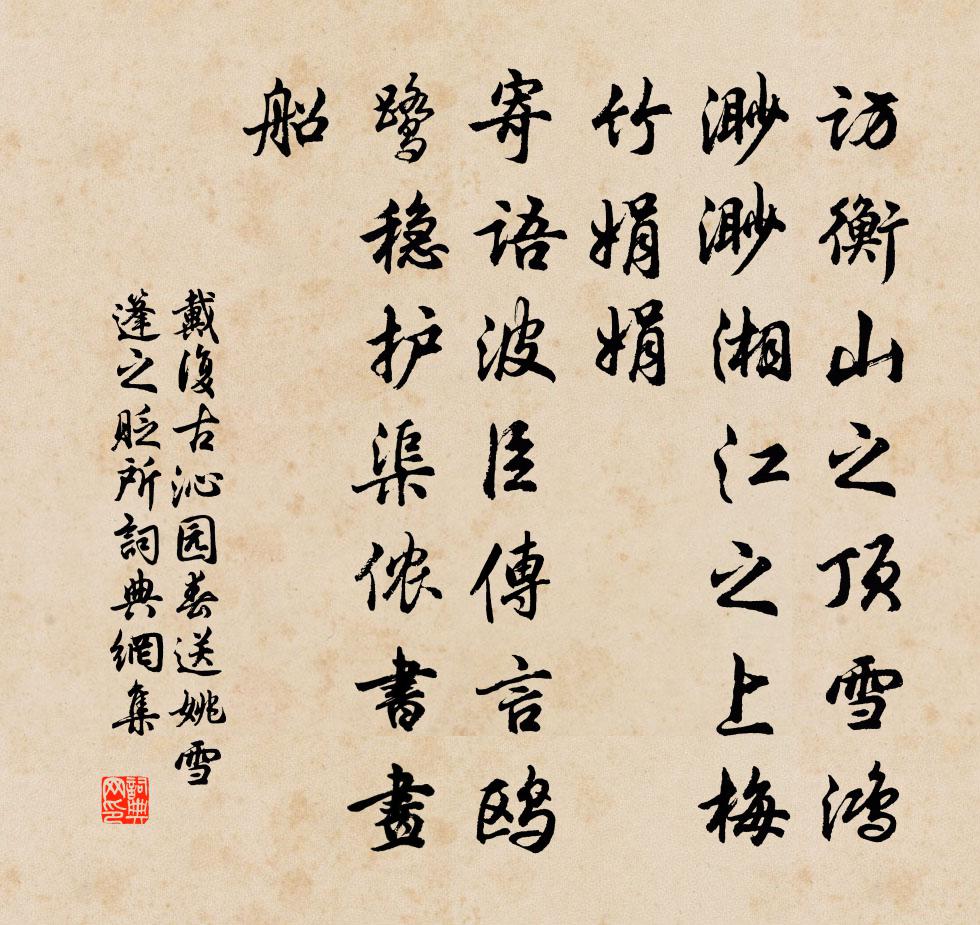 访衡山之顶雪鸿
渺渺湘江之上梅
竹娟娟
寄语波臣傳言鸥
鹭稳护渠侬書畫
船
戴復古沁园春送姚雪
蓬之贬所詞典網集
詞典
网印